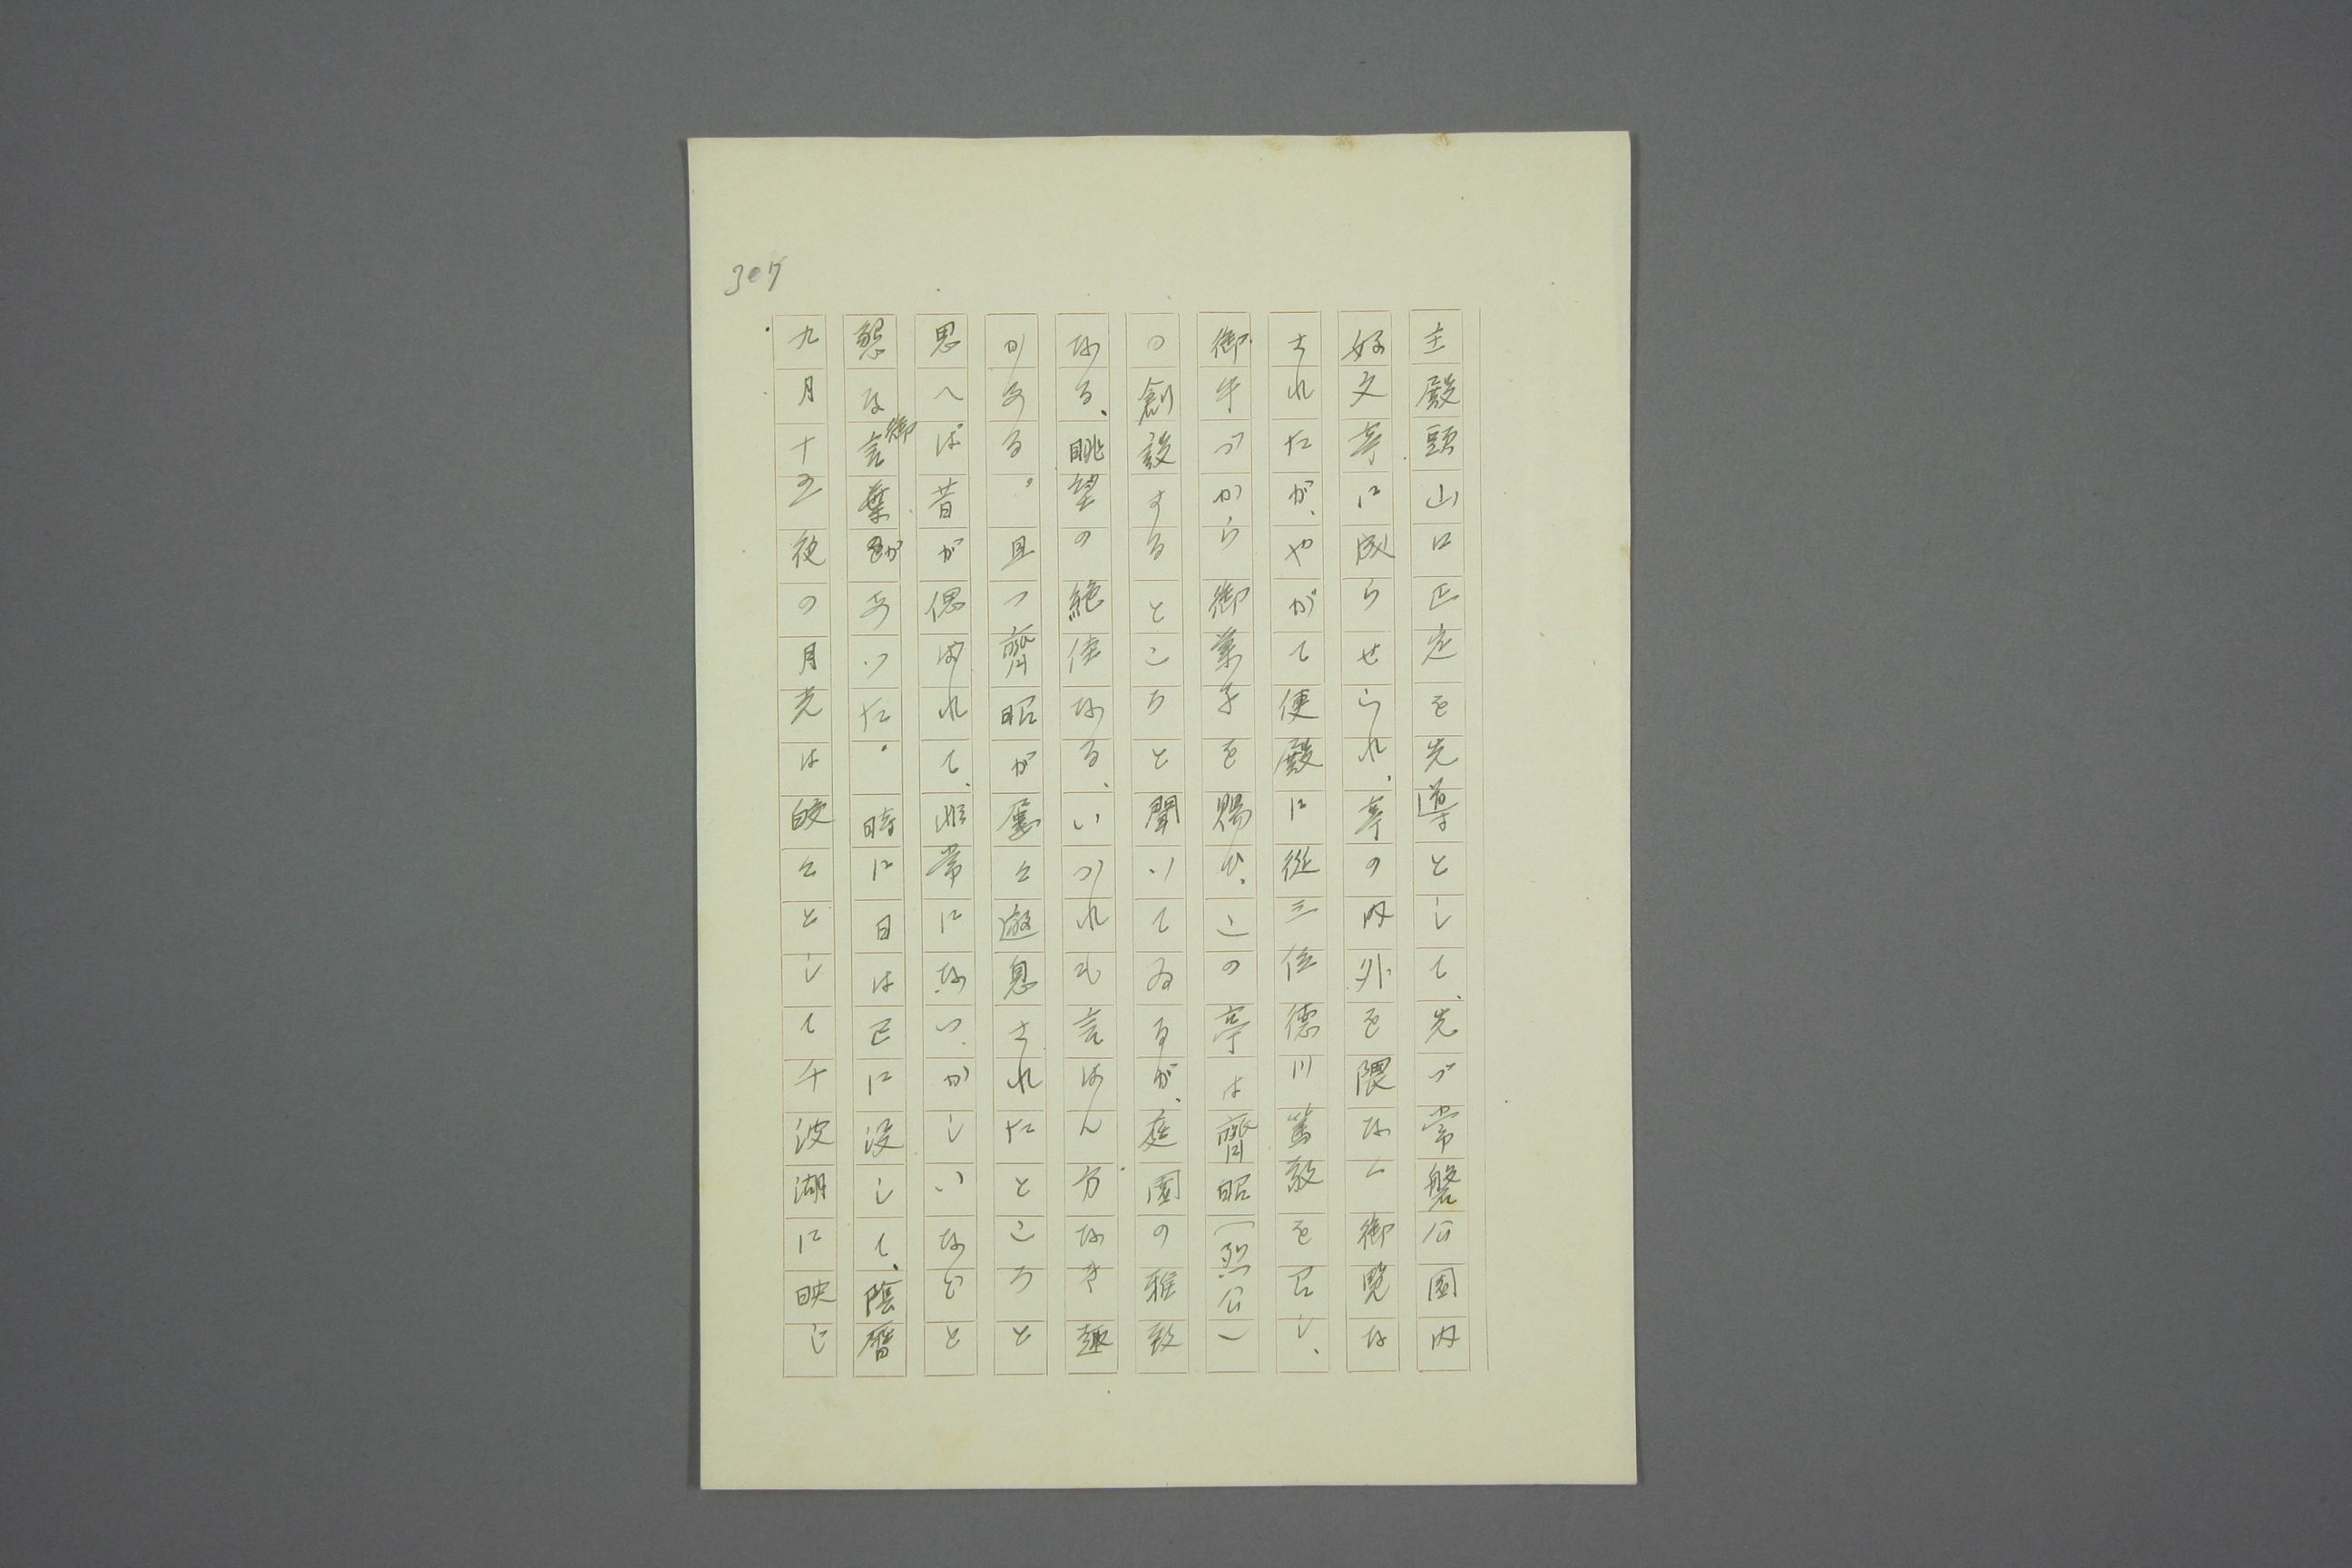 307
主殿頭山口正定を先導として、先づ常磐公園内
好文亭に成らせられ、亭の内外を隈なく御覧な
されたが、やがて便殿に従三位徳川篤敬を召し、
御手づから御菓子を賜ひ、この亭は齊昭(烈公)
の創設するところと聞いてゐるが、庭園の雅致
なる、眺望の絶佳なる、いづれも言はん方なき趣
がある。且つ齊昭が屡々遊息されたところと
思へば昔が偲ばれて、非常になつかしいなどと
懇な御言葉があつた。時に日は已に没して、陰暦
九月十五夜の月光は皎々として千波湖に映じ